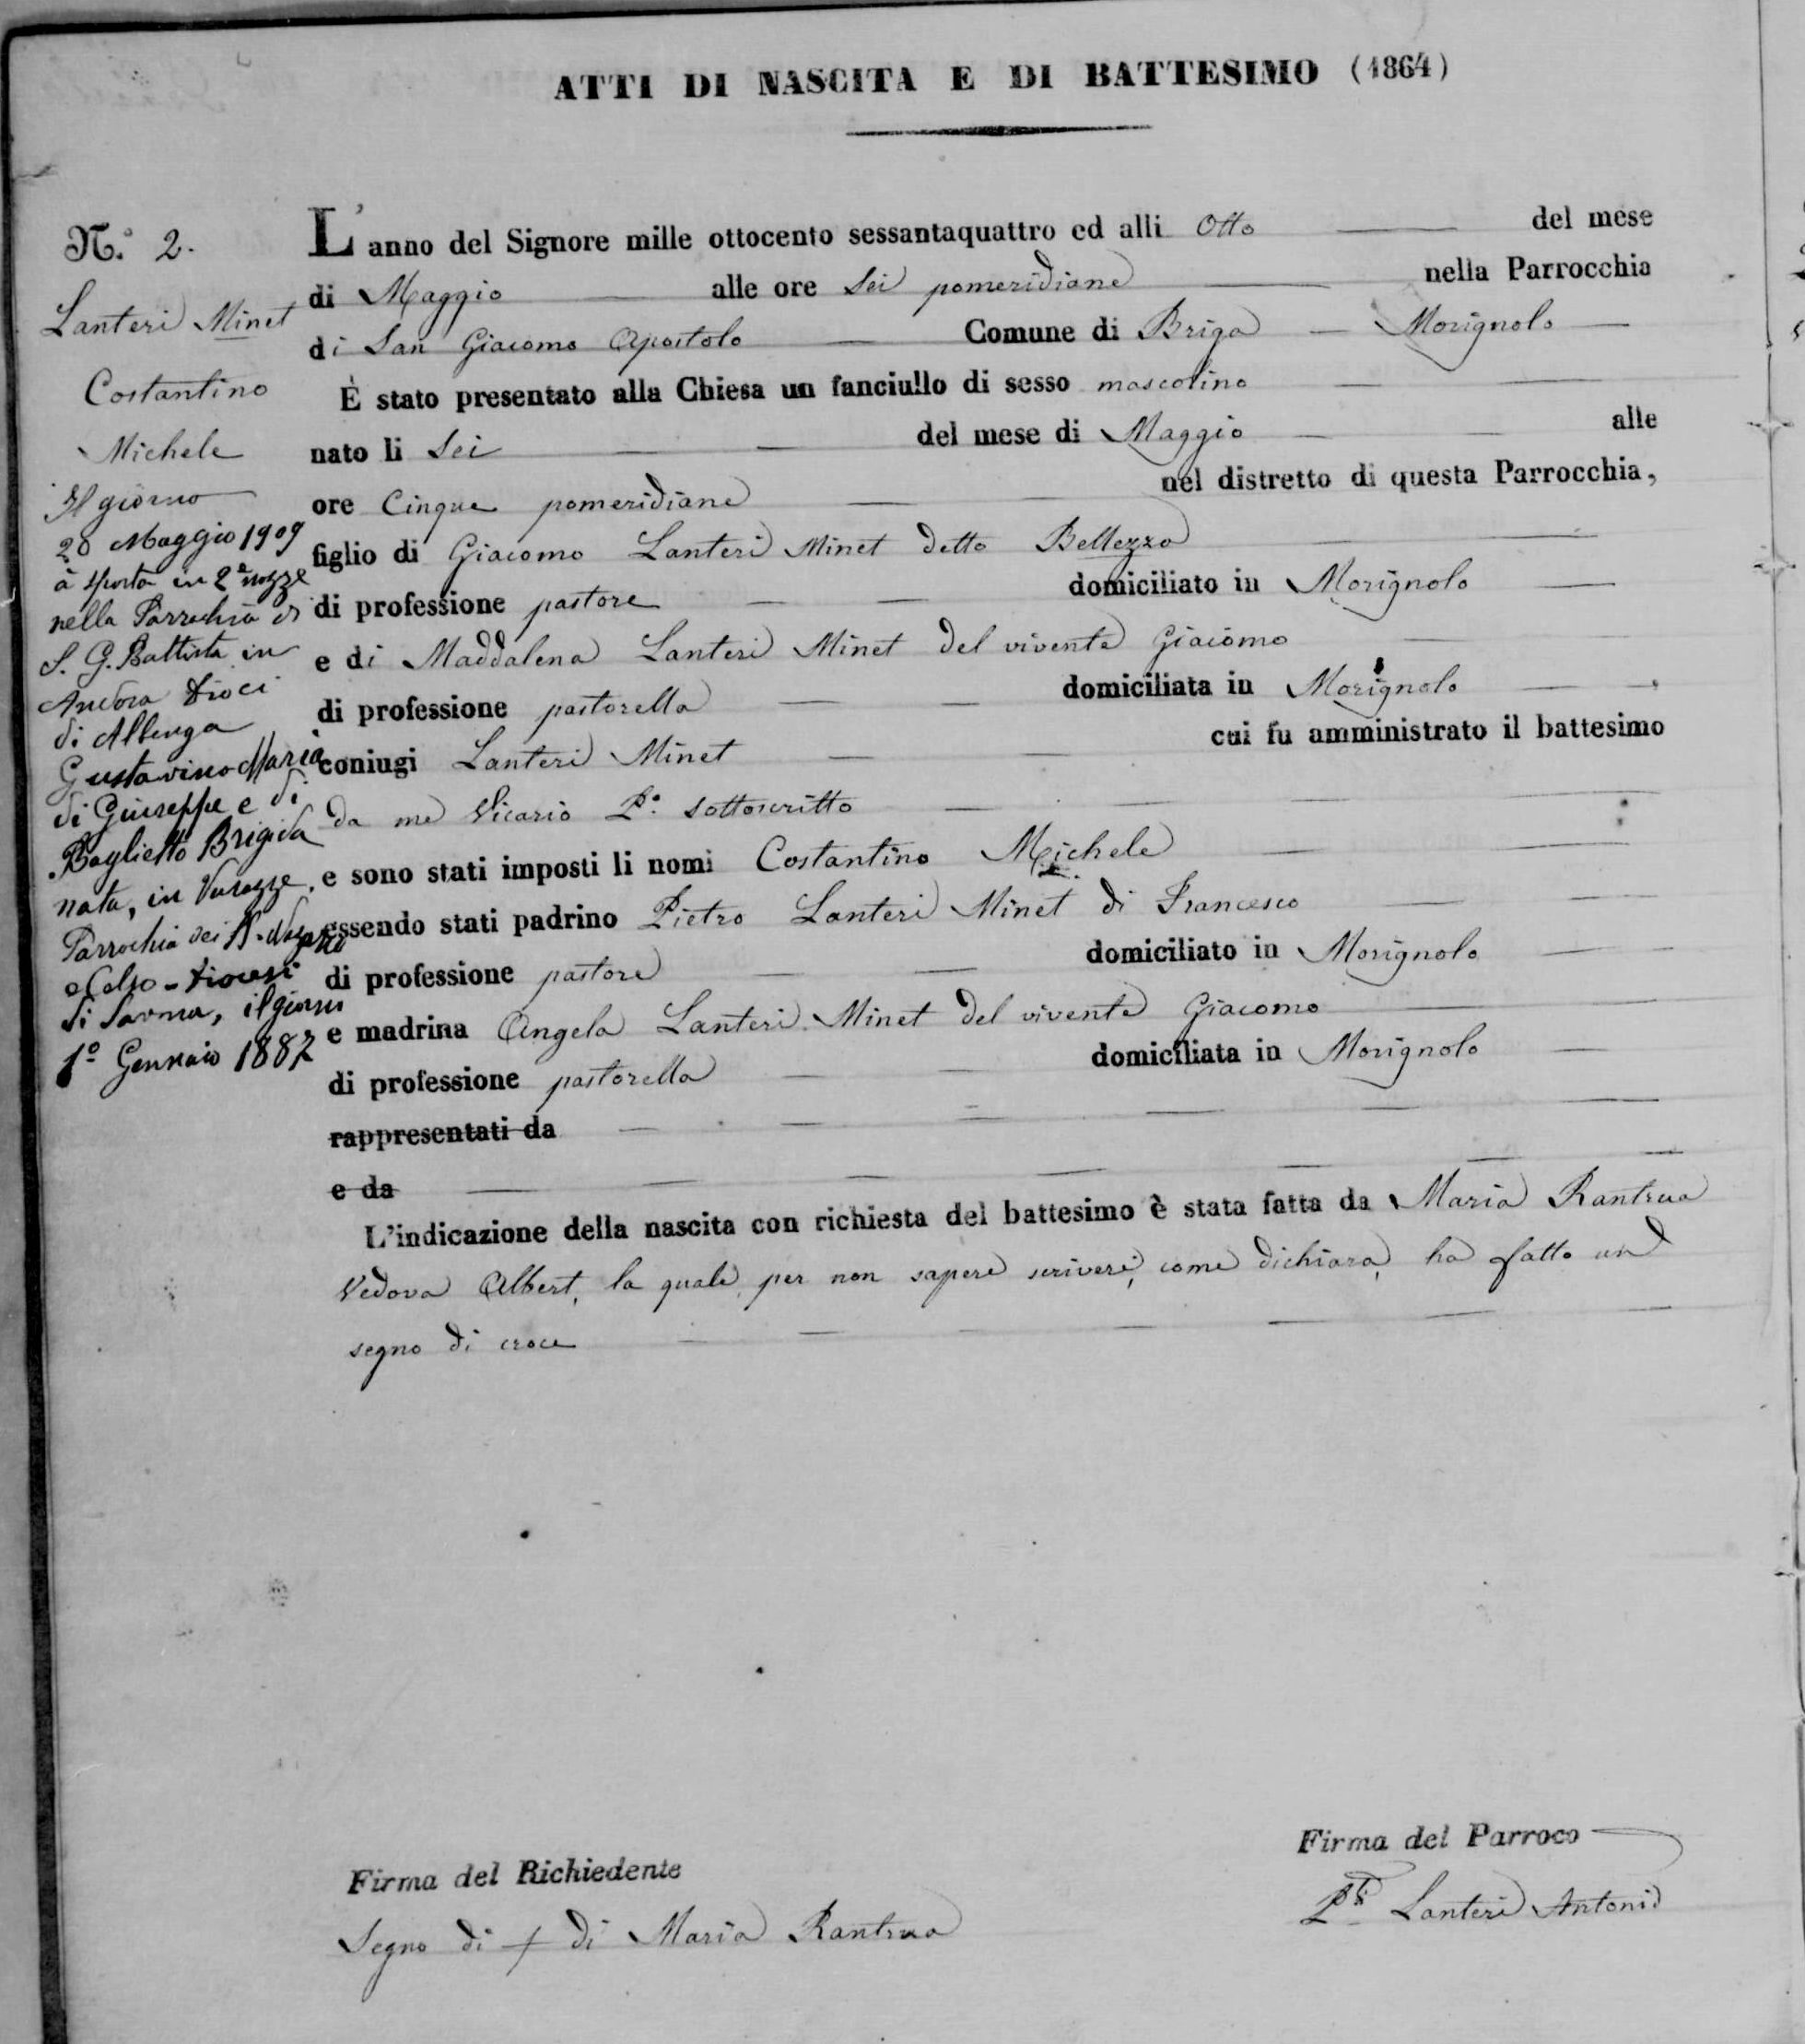 ATTI DI NASCITA E DI BATTESIMO (1864)
N.° 2.
Lanteri Minet
Costantino
Michele
Il giorno
20 Maggio 1909
à sposta in 2e nozze
nella Parrochia di
S. G. Battista in
Andora Dioci
di Albenga
Gustavino Maria
di Giuseppe e di
Baglietto Brigida
nata, in Varazze,
Parrochia dei SS. Nazario
e Celso - Diocesi
di Savona, il giorno
1° Gennaio 1887
L'anno del Signore mille ottocento sessantaquattro ed alli Otto del mese
di Maggio alle ore Sei pomeridiane nella Parrocchia
di San Giacomo Apostolo Comune di Briga Morignolo
È stato presentato alla Chiesa un fanciullo di sesso mascolino
nato li Sei del mese di Maggio alle
ore Cinque pomeridiane nel distretto di questa Parrocchia,
figlio di Giacomo Lanteri Minet detto Bellezza
di professione pastore domiciliato in Morignolo
e di Maddalena Lanteri Minet del vivente Giacomo
di professione pastorella domiciliata in Morignolo
coniugi Lanteri Minet cui fu amministrato il battesimo
da me Vicario P.° sottoscritto
e sono stati imposti li nomi Costantino Michele
essendo stati padrino Pietro Lanteri Minet di Francesco
di professione pastore domiciliato in Morignolo
e madrina Angela Lanteri Minet del vivente Giacomo
di professione pastorella domiciliata in Morignolo
rappresentati da
e da
L'indicazione della nascita con richiesta del battesimo è stata fatta da Maria Rantrua
Vedova Albert, la quale, per non sapere scrivere, come dichiara, ha fatto un
segno di croce
Firma del Richiedente
Segno di + di Maria Rantrua
Firma del Parroco
Lanteri Antonio